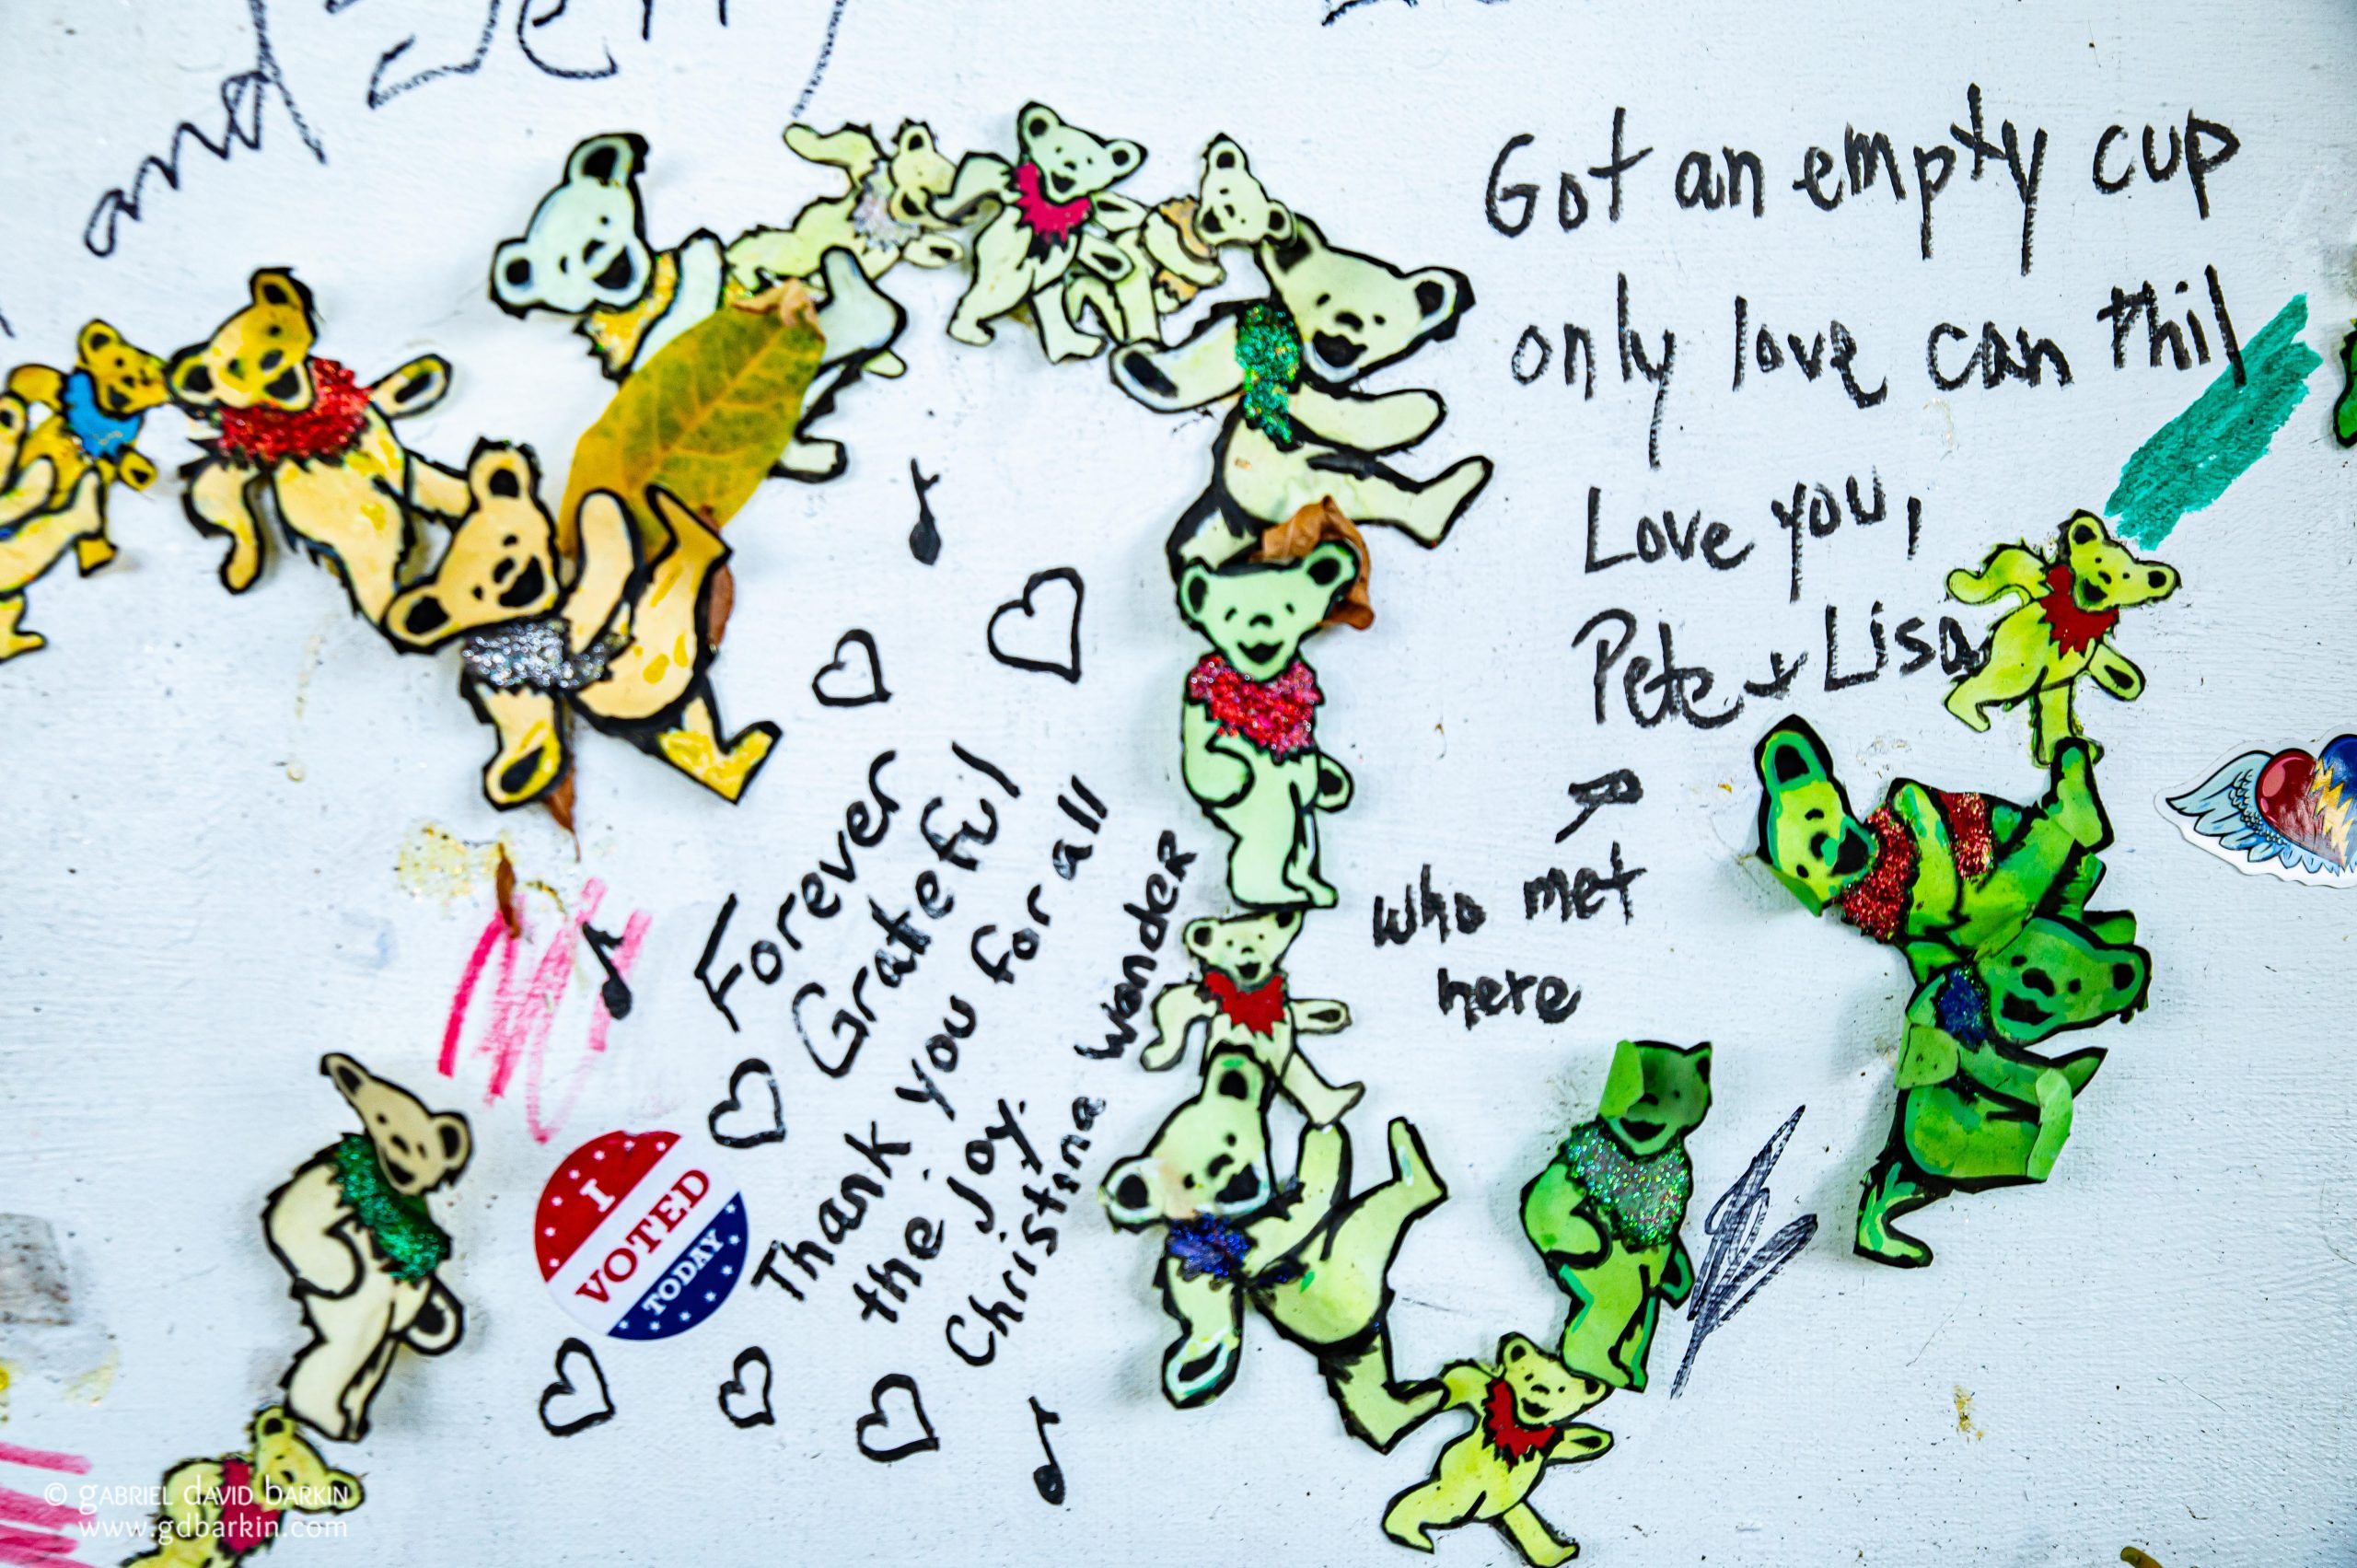 and Jerry
Got an empty cup
only love can fhil
Love you,
Pete + Lisa
who met
here
Forever
Grateful
Thank you for all
the joy.
Christina Wonder
I
VOTED
TODAY
© GABRIEL DAVID BARKIN
www.gdbarkin.com